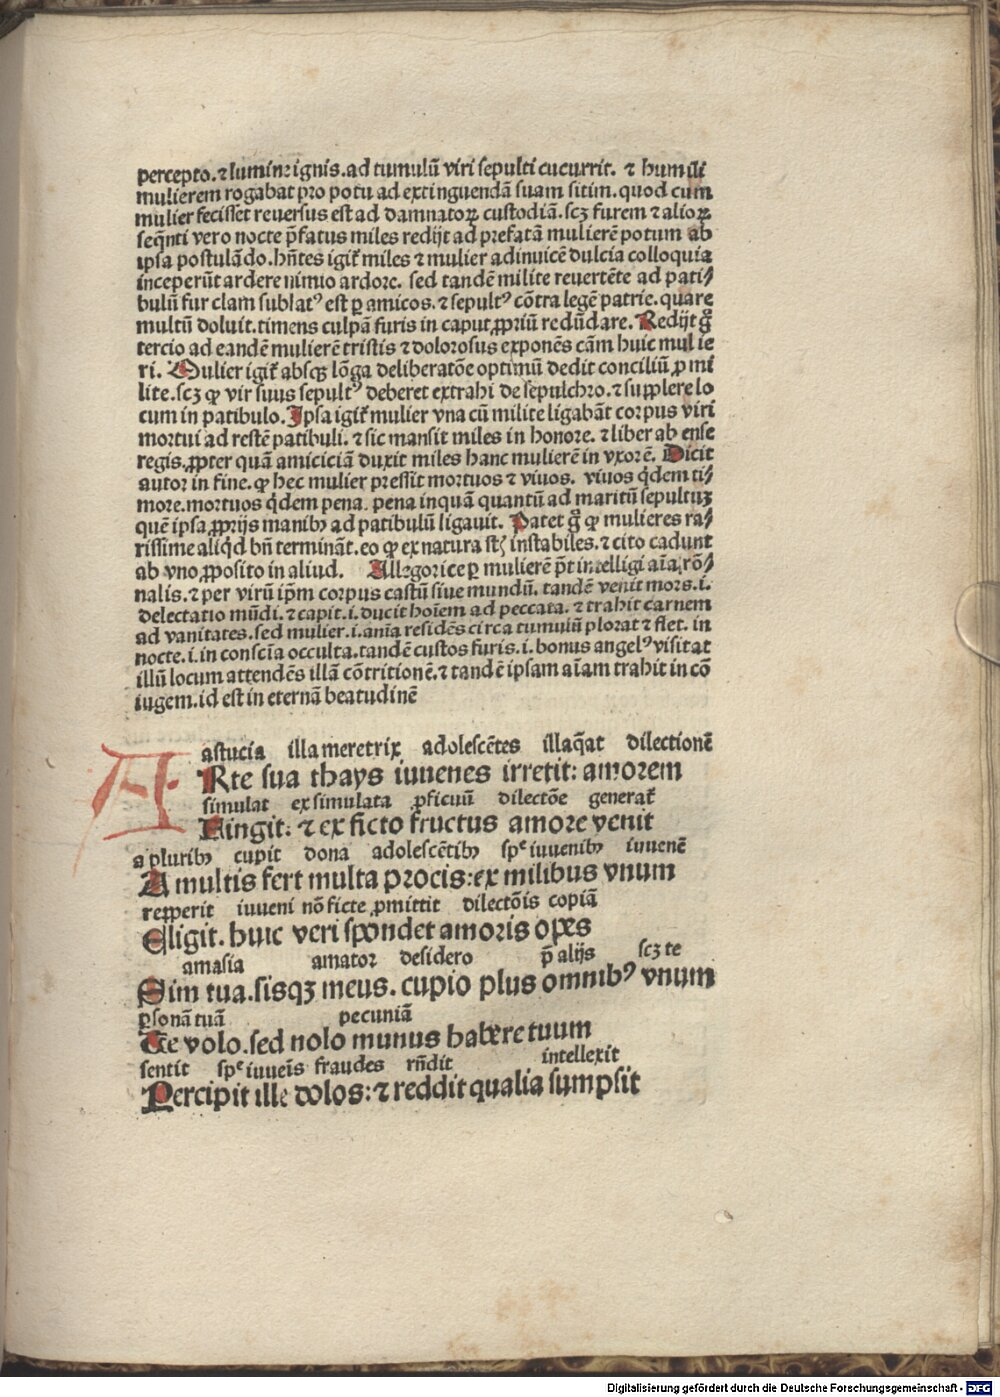 percepto. ⁊ lumine ignis. ad tumulū viri sepulti cucurrit. ⁊ humili
mulierem rogabat pro potu ad extinguendā suam sitim. quod cum
mulier fecisset reuersus est ad damnatoꝝ custodiā. scꝫ furem ⁊ alioꝝ
seq̄nti vero nocte p̄fatus miles redijt ad prefatā mulierē potum ab
ipsa postulādo. hn̄tes igit᷑ miles ⁊ mulier adinuicē dulcia colloquia
inceperūt ardere nimio ardore. sed tandē milite reuertēte ad pati⸗
bulū fur clam sublatꝰ est ꝑ amicos. ⁊ sepultꝰ cōtra legē patrie. quare
multū doluit. timens culpā furis in caput ꝓpriū redūdare. Redijt gͦ
tercio ad eandē mulierē tristis ⁊ dolorosus exponēs cām huic mulie
ri. Mulier igit᷑ absqꝫ lōga deliberatōe optimū dedit conciliū ꝓ mi
lite. scꝫ ꝙ vir suus sepultꝰ deberet extrahi de sepulchro. ⁊ supplere lo
cum in patibulo. Ipsa igit᷑ mulier vna cū milite ligabāt corpus viri
mortui ad restē patibuli. ⁊ sic mansit miles in honore. ⁊ liber ab ense
regis. ꝓpter quā amiciciā duxit miles hanc mulierē in vxorē. Dicit
autor in fine. ꝙ hec mulier pressit mortuos ⁊ viuos. viuos q̇dem ti⸗
more. mortuos q̇dem pena. pena inquā quantū ad maritū sepultuꝫ
quē ipsa ꝓprijs manibꝰ ad patibulū ligauit. Patet gͦ ꝙ mulieres ra⸗
rissime aliq̇d bn̄ termināt. eo ꝙ ex natura st̄ instabiles. ⁊ cito cadunt
ab vno ꝓposito in aliud. Allegorice ꝑ mulierē p̄t intelligi aīa rō⸗
nalis. ⁊ per virū ip̄m corpus castū siue mundū. tandē venit mors. i.
delectatio mūdi. ⁊ capit. i. ducit hoīem ad peccata. ⁊ trahit carnem
ad vanitates. sed mulier. i. anīa residēs circa tumulū plorat ⁊ flet. in
nocte. i. in conscīa occulta. tandē custos furis. i. bonus angelꝰ visitat
illū locum attendēs illā cōtritionē. ⁊ tandē ipsam aīam trahit in cō
iugem. id est in eternā beatudinē
astucia illa meretrix adolescētes illaq̄at dilectionē
A ARte sua thays iuuenes irretit: amorem
simulat ex simulata ꝓficuū dilectōe generat᷑
Fingit: ⁊ ex ficto fructus amore venit
a pluribꝰ cupit dona adolescētibꝰ spᵉ iuuenibꝰ iuuenē
A multis fert multa procis: ex milibus vnum
repperit iuueni nō ficte ꝓmittit dilectōis copiā
Eligit. huic veri spondet amoris opes
amasia amator desidero p̄ alijs scꝫ te
Sim tua. sisqꝫ meus. cupio plus omnibꝰ vnum
ꝑsonā tuā pecuniā
Te volo. sed nolo munus habere tuum
sentit spᵉ iuueīs fraudes rn̄dit intellexit
Percipit ille dolos: ⁊ reddit qualia sumpsit
Digitalisierung gefördert durch die Deutsche Forschungsgemeinschaft - DFG